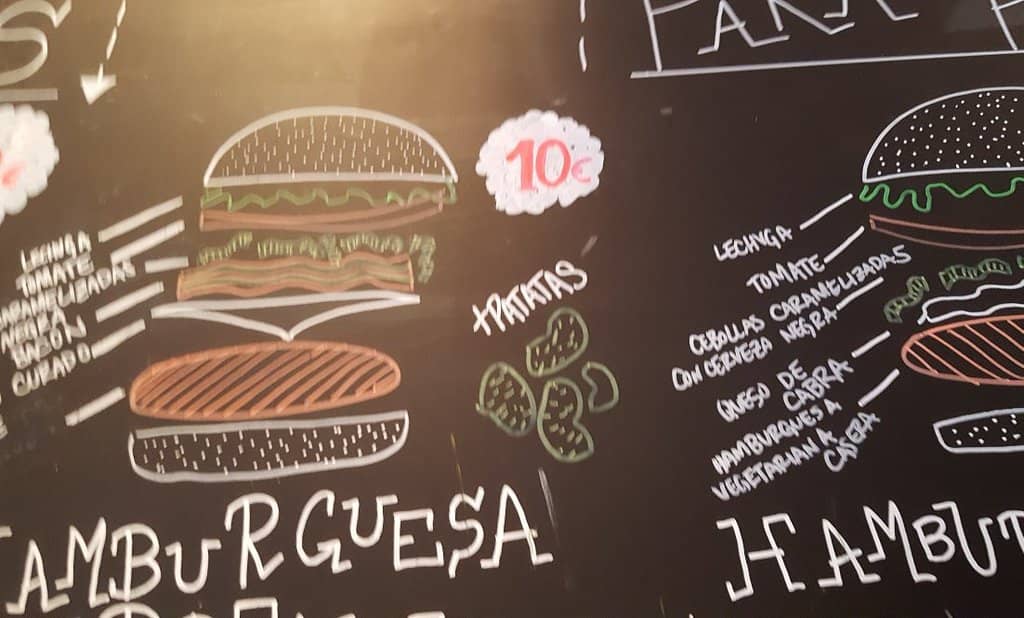 PARA
10€
LECHUGA
TOMATE
CARAMELIZADAS
NEGRA
BACON
CURADO
+PATATAS
HAMBURGUESA
LECHUGA
TOMATE
CEBOLLAS CARAMELIZADAS
CON CERVEZA NEGRA
QUESO DE
CABRA
HAMBURGUESA
VEGETARIANA
CASERA
HAMBU